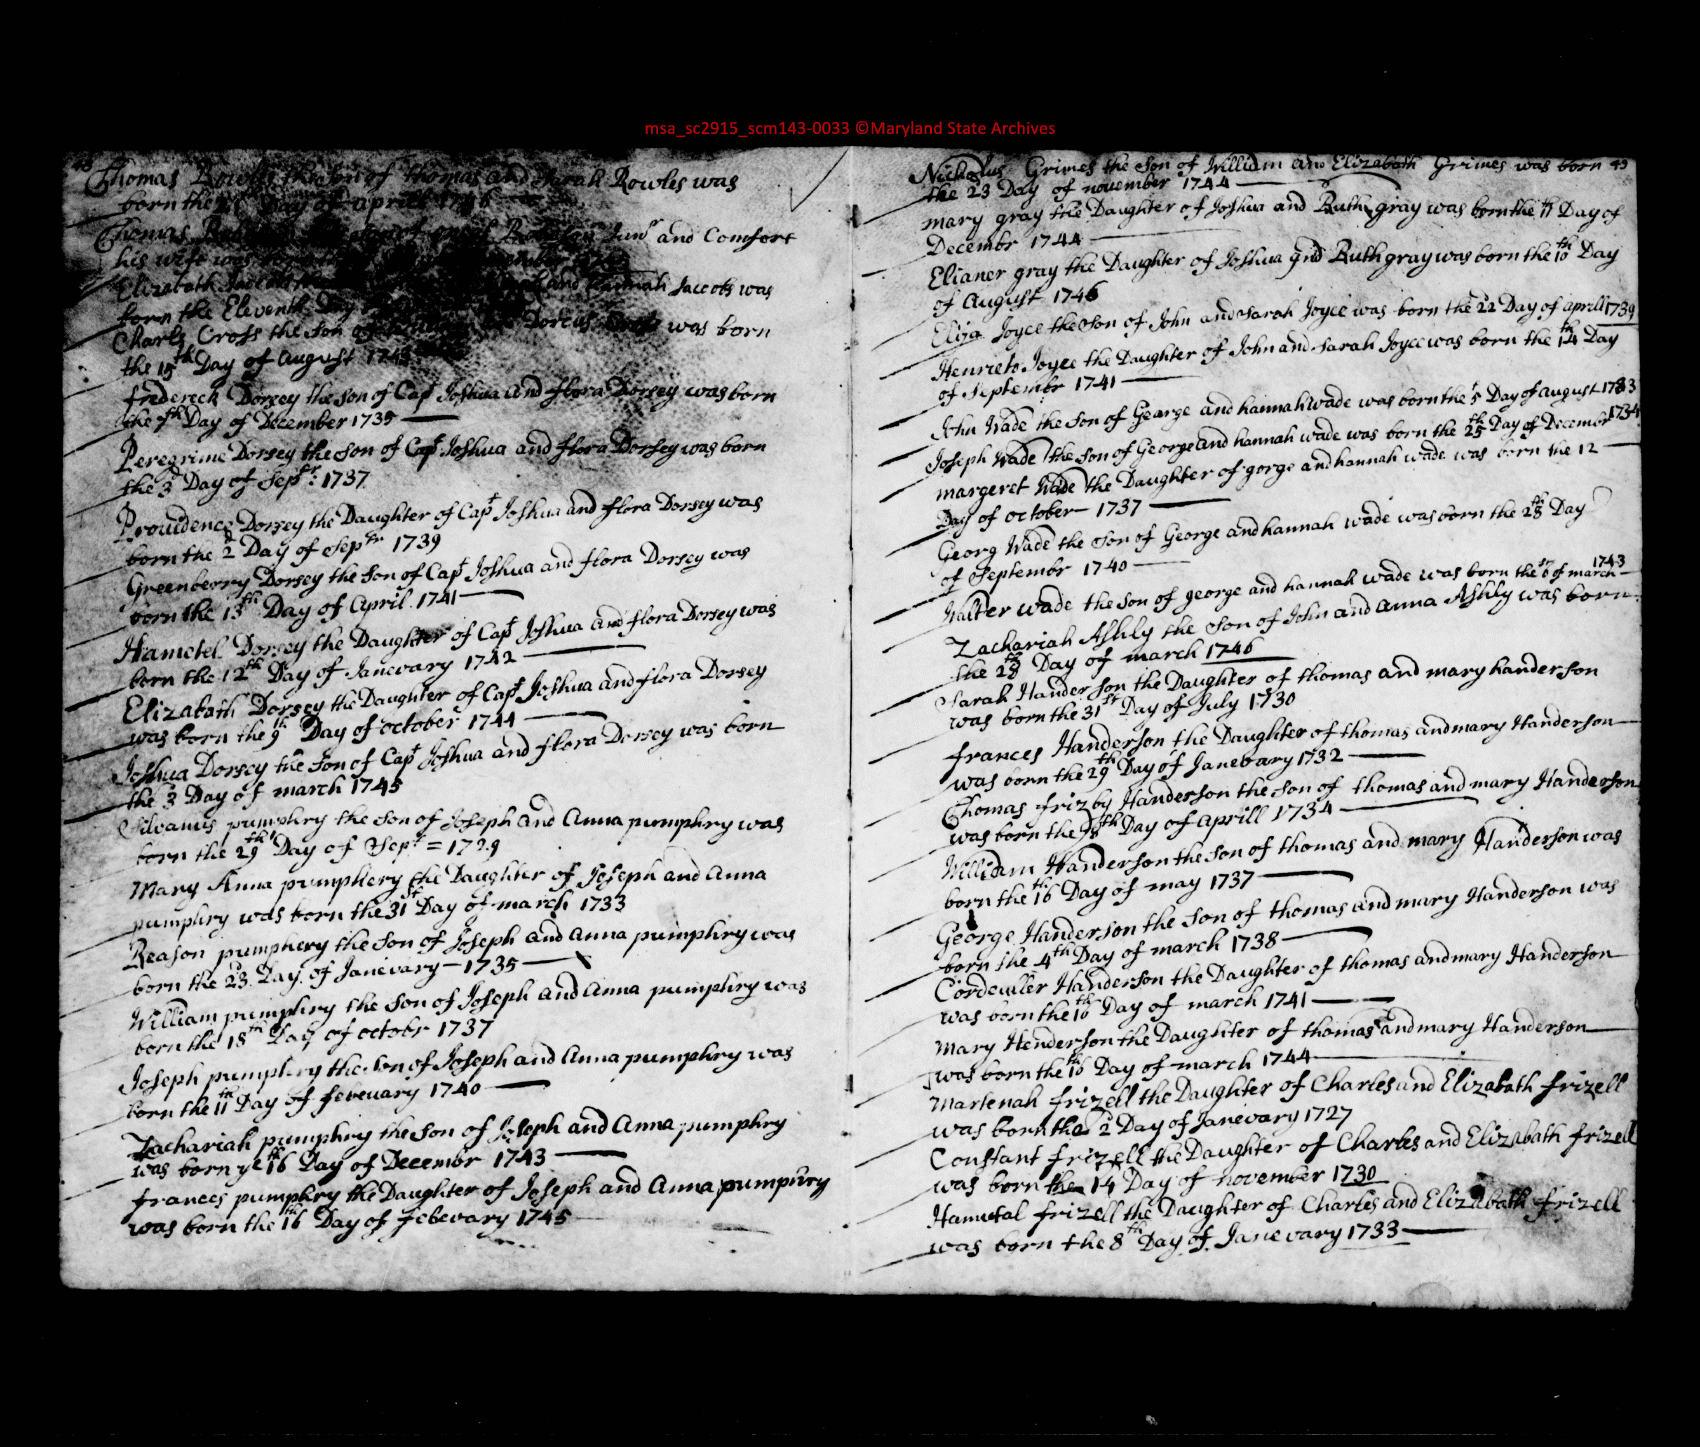 msa_sc2915_scm143-0033 ©Maryland State Archives
Thomas Rowles the Son of thomas and Sarah Rowles was
born the Day of aprill 1746
Thomas Junr and Comfort
his wife was
Elizabath and Hannah Jacobs was
born the Eleventh Day
Charls Cross the Son of Dorcus Cross was born
the 15th Day of August
fredereck Dorsey the Son of Capt Joshua and flora Dorsey was born
the 7th Day of December 1735
Peregrime Dorsey the Son of Capt Joshua and flora Dorsey was born
the 3d Day of Sepbr: 1737
Providence Dorsey the Daughter of Capt Joshua and flora Dorsey was
born the 2d Day of Sepbr 1739
Greenberry Dorsey the Son of Capt Joshua and flora Dorsey was
born the 13th Day of April. 1741
Hametel Dorsey the Daughter of Capt Joshua and flora Dorsey was
born the 12th Day of Janevary 1742
Elizabath Dorsey the Daughter of Capt Joshua and flora Dorsey
was born the 9th Day of october 1744
Joshua Dorsey the Son of Capt Joshua and flora Dorsey was born
the 3 Day of march 1745
Silvanus pumphry the Son of Joseph and Anna pumphry was
born the 29th Day of Sept = 1729
Mary Anna pumphery the Daughter of Joseph and Anna
pumphry was born the 31st Day of march 1733
Reason pumphery the Son of Joseph and Anna pumphry was
born the 23d Day of Janevary - 1735
William pumphry the Son of Joseph and Anna pumphry was
born the 18th Day of octobr 1737
Joseph pumphry the Son of Joseph and Anna pumphry was
born the 11th Day of febeuary 1740
Zachariah pumphry the Son of Joseph and Anna pumphry
was born ye 16th Day of Decembr 1743
frances pumphry the Daughter of Joseph and Anna pumphry
was born the 16th Day of febevary 1745
Nicholus Grimes the Son of William and Elizabath Grimes was born 49
the 23 Day of november 1744
mary gray the Daughter of Joshua and Ruth gray was born the 11 Day of
Decembr 1744
Elianer gray the Daughter of Joshua and Ruth gray was born the 10th Day
of August 1746
Eliza Joyce the Son of John and Sarah Joyce was born the 22 Day of aprill 1739
Henrieto Joyce the Daughter of John and Sarah Joyce was born the 14th Day
of Septembr 1741
John Wade the Son of Gearge and hannah Wade was born the 5 Day of august 1733
Joseph Wade the Son of George and hannah wade was born the 25th Day of Decembr 1734
margeret Wade the Daughter of gorge and hannah wade was born the 12
Day of october 1737
Georg Wade the Son of George and hannah wade was born the 28th Day
of Septembr 1740
Walter wade the Son of george and hannah wade was born the 6 of march 1743
Zachariah Ashly the Son of John and Anna Ashly was born
the 28th Day of march 1746
Sarah Handerson the Daughter of thomas and mary handerson
was born the 31st Day of July 1730
frances Handerson the Daughter of thomas and mary Handerson
was born the 29th Day of Janebary 1732
Thomas frizby Handerson the Son of thomas and mary Handerson
was born the 28th Day of aprill 1734
William Handerson the Son of thomas and mary Handerson was
born the 16th Day of may 1737
George Handerson the Son of thomas and mary Handerson was
born the 4th Day of march 1738
Cordewller Handerson the Daughter of thomas and mary Handerson
was born the 16th Day of march 1741
mary Henderson the Daughter of thomas and mary Handerson
was born the 16th Day of march 1744
Martenah frizell the Daughter of Charles and Elizabath frizell
was born the 2 Day of Janevary 1727
Constant frizell the Daughter of Charles and Elizabath frizell
was born the 14 Day of november 1730
Hamutal frizell the Daughter of Charles and Elizabath frizell
was born the 8th Day of Janevary 1733